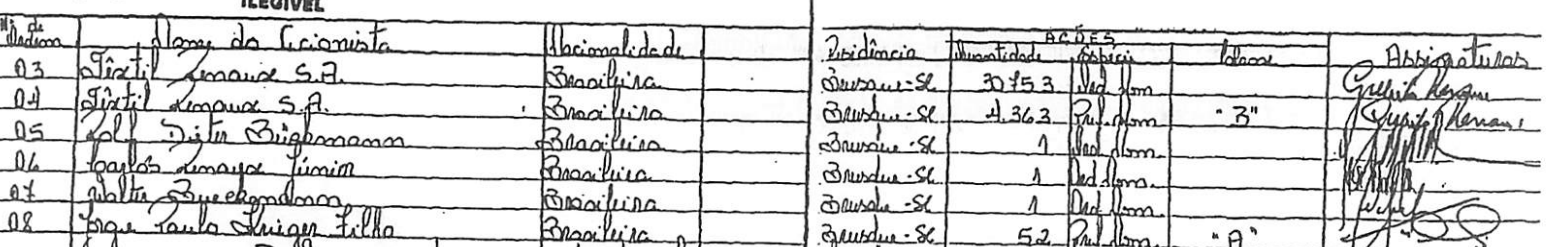 ILEGÍVEL
Nº de Ordem Nome do Acionista Nacionalidade Residência AÇÕES Quantidade Espécie Classe Assinaturas
03 Têxtil Renaux S.A. Brasileira Brusque-SC 30753 Ord Nom
04 Têxtil Renaux S.A. Brasileira Brusque-SC 4.363 Pref. Nom "B"
05 Rolf Dieter Bückmann Brasileira Brusque-SC 1 Ord Nom
06 Carlos Renaux Júnior Brasileira Brusque-SC 1 Ord Nom.
07 Walter Brasileira Brusque-SC 1 Ord Nom
08 Jorge Paulo Krieger Filho Brasileira Brusque-SC 52 Pref Nom "A"